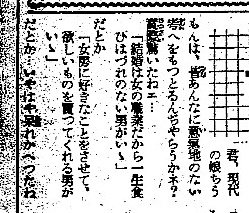 君、現代
の娘ちう
もんは、皆あんなに意氣地のない
考へをもつとるんぢやらうかネ?
實際驚いたねエ…
「結婚は女の職業だから一生食
ひはづれのない男がいゝ」
だとか
「女房に好きなことをさせて、
欲しいものを買つてくれる男が
いゝ」
だとか…いやはや呆れかへつたね